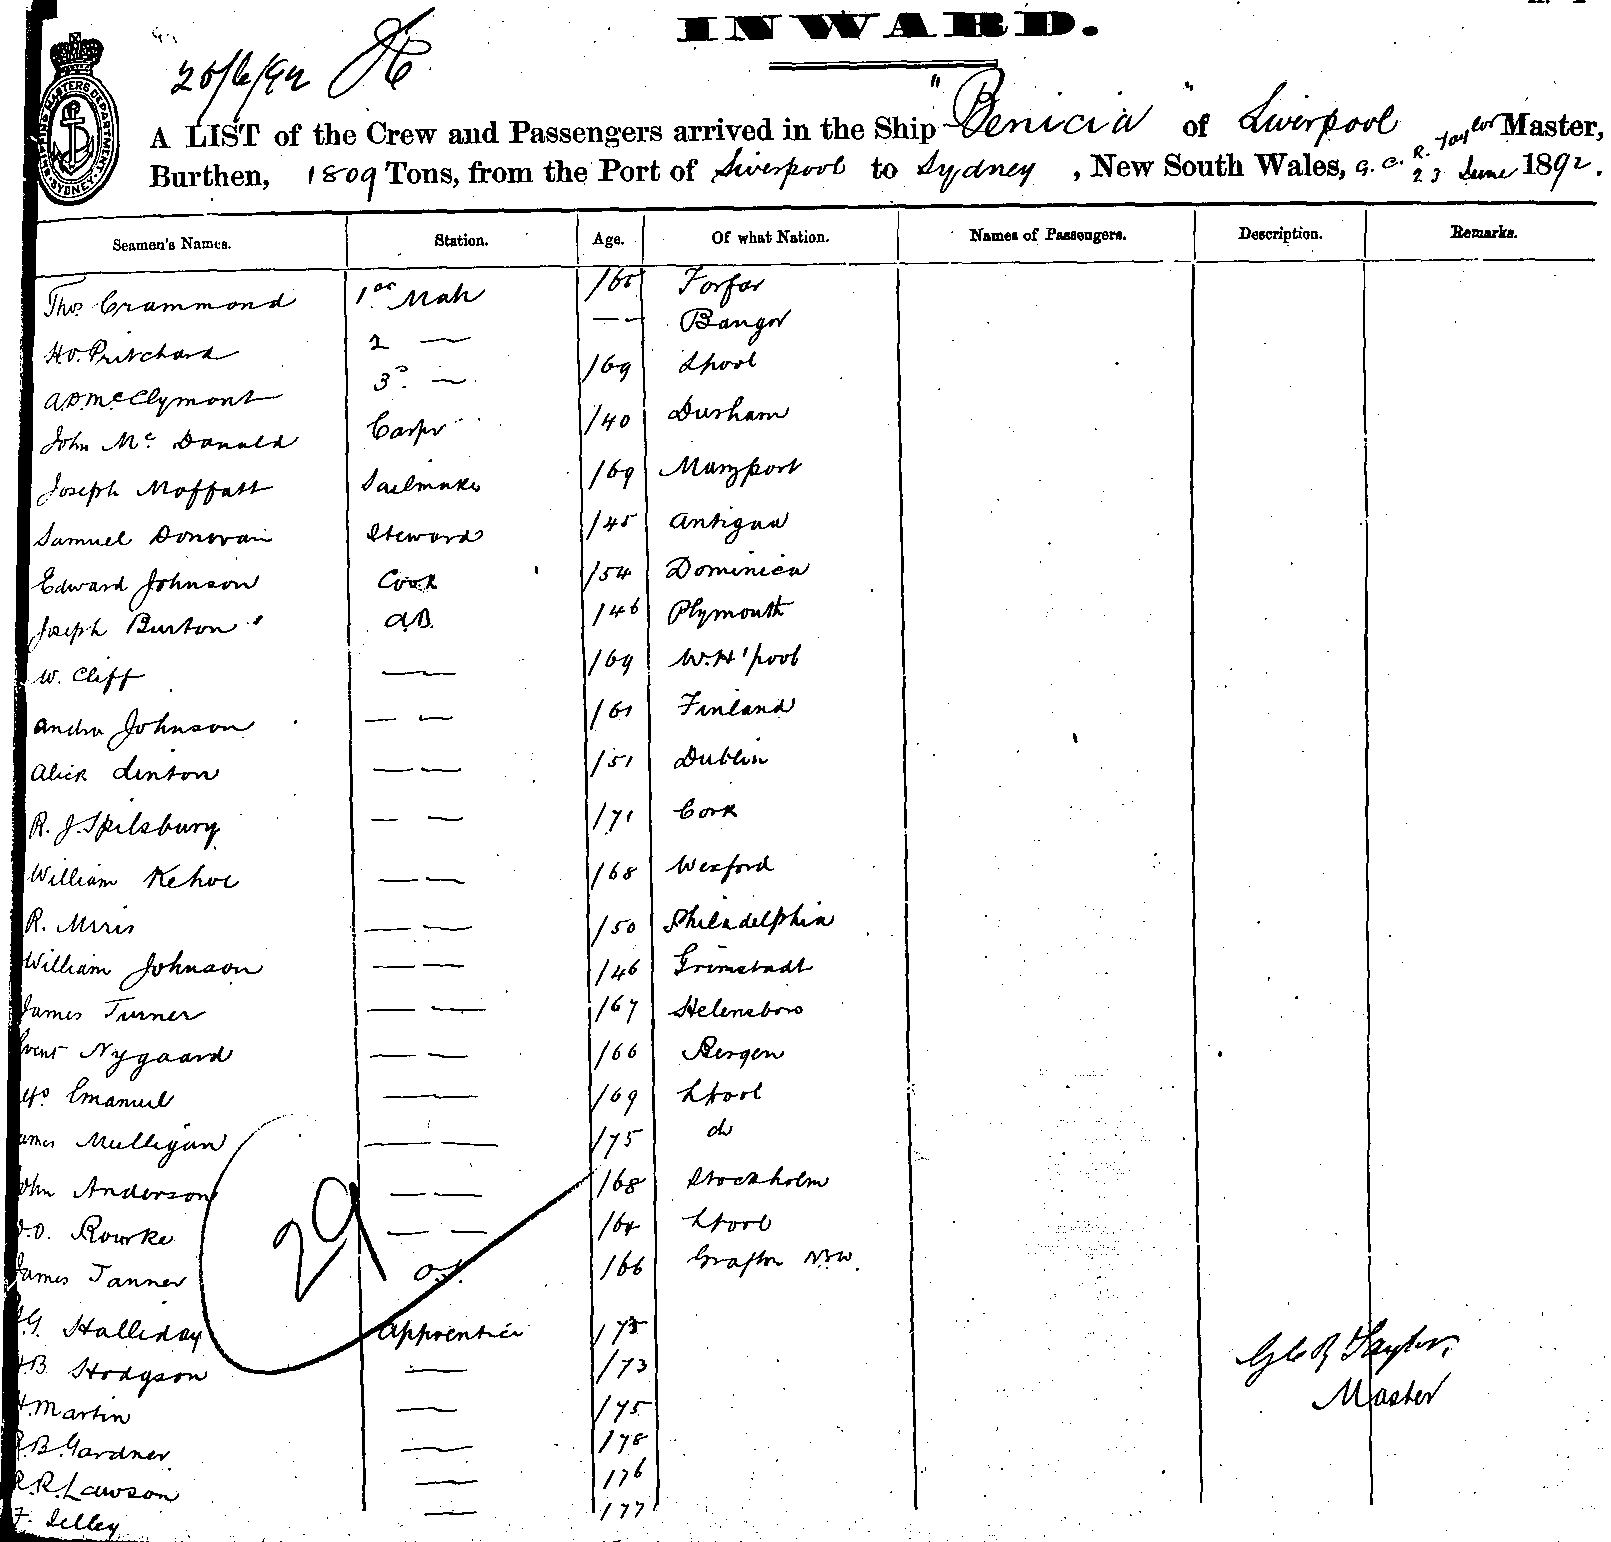 INWARD.
20/6/92
A LIST of the Crew and Passengers arrived in the Ship "Benicia" of Liverpool G. C. R. Taylor Master,
Burthen, 1809 Tons, from the Port of Liverpool to Sydney, New South Wales, 23 June 1892.
Seamen's Names. Station. Age. Of what Nation. Names of Passengers. Description. Remarks.
Thos Crammond 1st Mate /65 Forfar
Ho. Pritchard 2 — — — Bangor
A.D. McClymont 3d — /69 Lpool
John Mc Donald Carpr /40 Durham
Joseph Moffatt Sailmaker /69 Maryport
Samuel Donovan Steward /45 Antigua
Edward Johnson Cook /54 Dominica
Joseph Burton A.B. /46 Plymouth
W. Cliff — /69 W.H'pool
Andrw Johnson — — /61 Finland
Alick Linton — — /51 Dublin
R. J. Spilsbury — — /71 Cork
William Kehoe — — /68 Wexford
R. — — /50 Philadelphia
William Johnson — — /46 Grimstadt
James Turner — — /67 Helensboro
Nygaard — — /66 Bergen
Emanuel — /69 Lpool
ames Mulligan — — /75 do
ohn Anderson — — /68 Stockholm
O. Rourke — — /64 Lpool
James Tanner O.S. /66 Grafton NSW.
G. Halliday Apprentice /73
B Hodgson — /73
H. Martin — /75
B. Gardner — /78
R. R. Lawson — /76
F. Selley — /77
29
Geo R Taylor,
Master